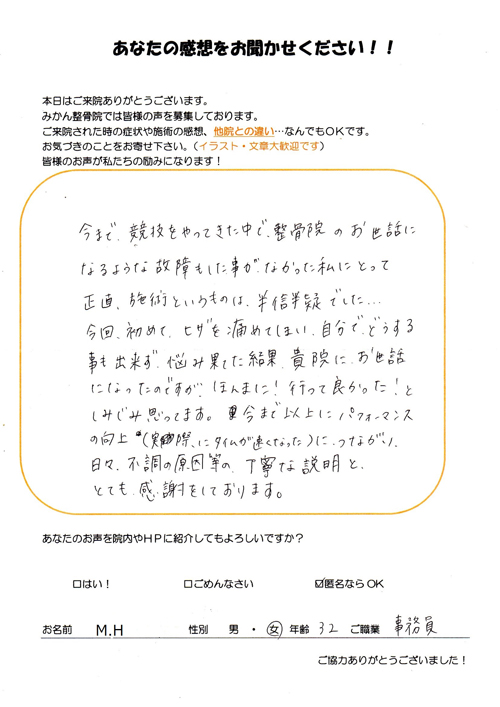 あなたの感想をお聞かせください！！
本日はご来院ありがとうございます。
みかん整骨院では皆様の声を募集しております。
ご来院された時の症状や施術の感想、他院との違い…なんでもOKです。
お気づきのことをお寄せ下さい。（イラスト・文章大歓迎です）
皆様のお声が私たちの励みになります！
今まで、競技をやってきた中で、整骨院のお世話に
なるような故障もした事がなかった私にとって
正直、施術というものは、半信半疑でした…
今回、初めて、ヒザを痛めてしまい、自分で、どうする
事も出来ず、悩み果てた結果、貴院に、お世話
になったのですが、ほんまに！行って良かった！と
しみじみ思ってます。今まで以上にパフォーマンス
の向上（実際にタイムが速くなった）に、つながり、
日々、不調の原因等の、丁寧な説明と、
とても、感謝をしております。
あなたのお声を院内やHPに紹介してもよろしいですか？
□はい！ □ごめんなさい ☑匿名ならOK
お名前 M.H 性別 男・女 年齢 32 ご職業 事務員
ご協力ありがとうございました！